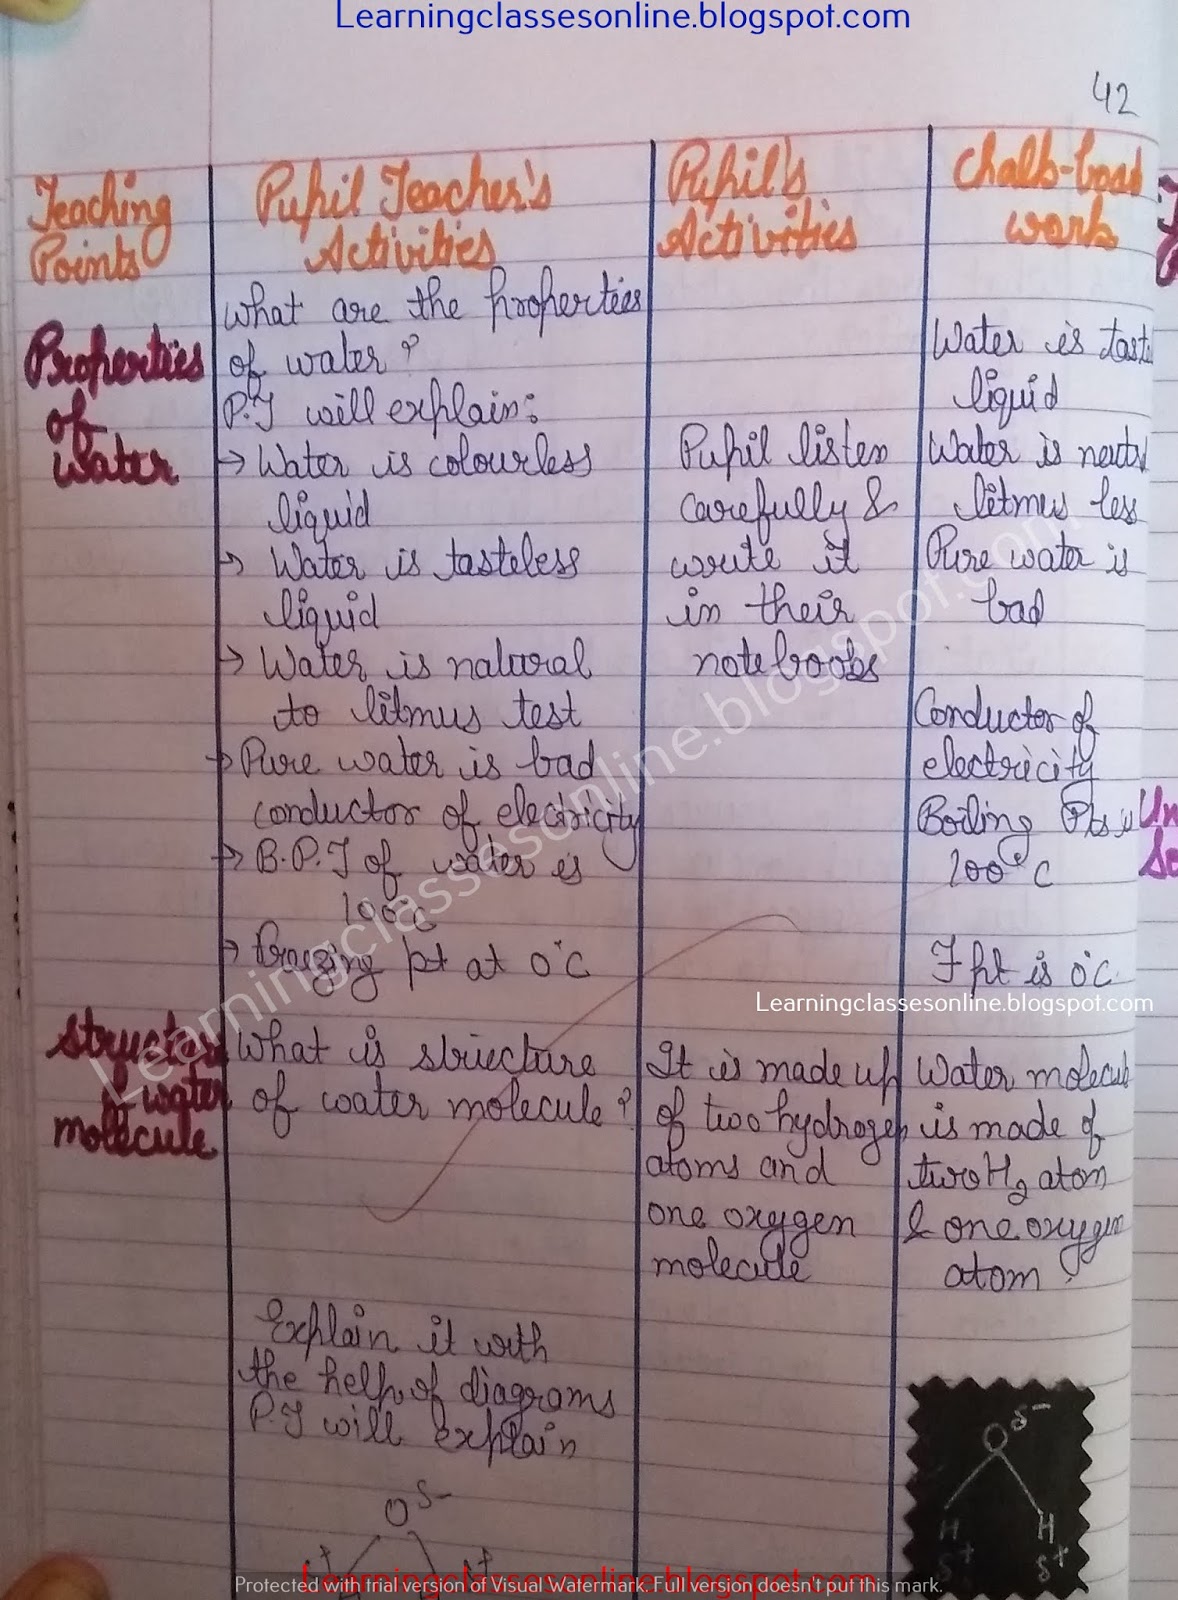 Learningclassesonline.blogspot.com
42
Teaching
Points
Pupil Teacher's
Activities
Pupil's
Activities
Chalk-board
work
Properties
of
water
What are the properties
of water?
P.T will explain:
→ Water is colourless
liquid
→ Water is tasteless
liquid
→ Water is natural
to litmus test
→ Pure water is bad
conductor of electricity
→ B.P.T of water is
100°C
→ Freezing pt at 0°C
Pupil listen
carefully &
write it
in their
notebooks
Water is taste
liquid
Water is neutral
litmus less
Pure water is
bad
Conductor of
electricity
Boiling Pts is
100°C
F pt is 0°C
Learningclassesonline.blogspot.com
Learningclassesonline.blogspot.com
Structure
of water
molecule
What is structure
of water molecule?
Explain it with
the help of diagrams
P.T will explain
O δ-
δ+ δ+
It is made up
of two hydrogen
atoms and
one oxygen
molecule
Water molecule
is made of
two H2 atom
& one oxygen
atom
O δ-
H H
δ+ δ+
Un
So
Learningclassesonline.blogspot.com
Protected with trial version of Visual Watermark. Full version doesn't put this mark.